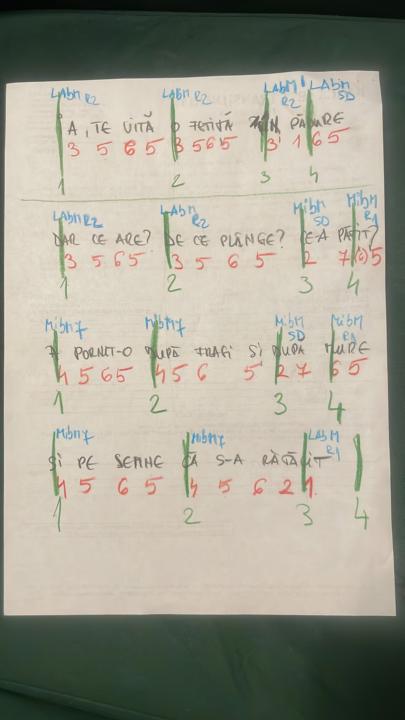 LAbM R2 LAbM R2 LAbM R2 LAbM SD
A, TE UITĂ O FETIȚĂ ÎN PĂDURE
3 5 6 5 3 5 6 5 3 1 6 5
1 2 3 4
LAbM R2 LAbM R2 MibM SD MibM R1
DAR CE ARE? DE CE PLÂNGE? CE-A PĂȚIT?
3 5 6 5 3 5 6 5 2 7 (6) 5
1 2 3 4
MibM7 MibM7 MibM SD MibM R1
A PORNIT-O DUPĂ FRAGI ȘI DUPĂ MURE
4 5 6 5 4 5 6 5 2 7 6 5
1 2 3 4
MibM7 MibM7 LAbM R1
ȘI PE SEMNE CĂ S-A RĂTĂCIT
4 5 6 5 4 5 6 2 1
1 2 3 4